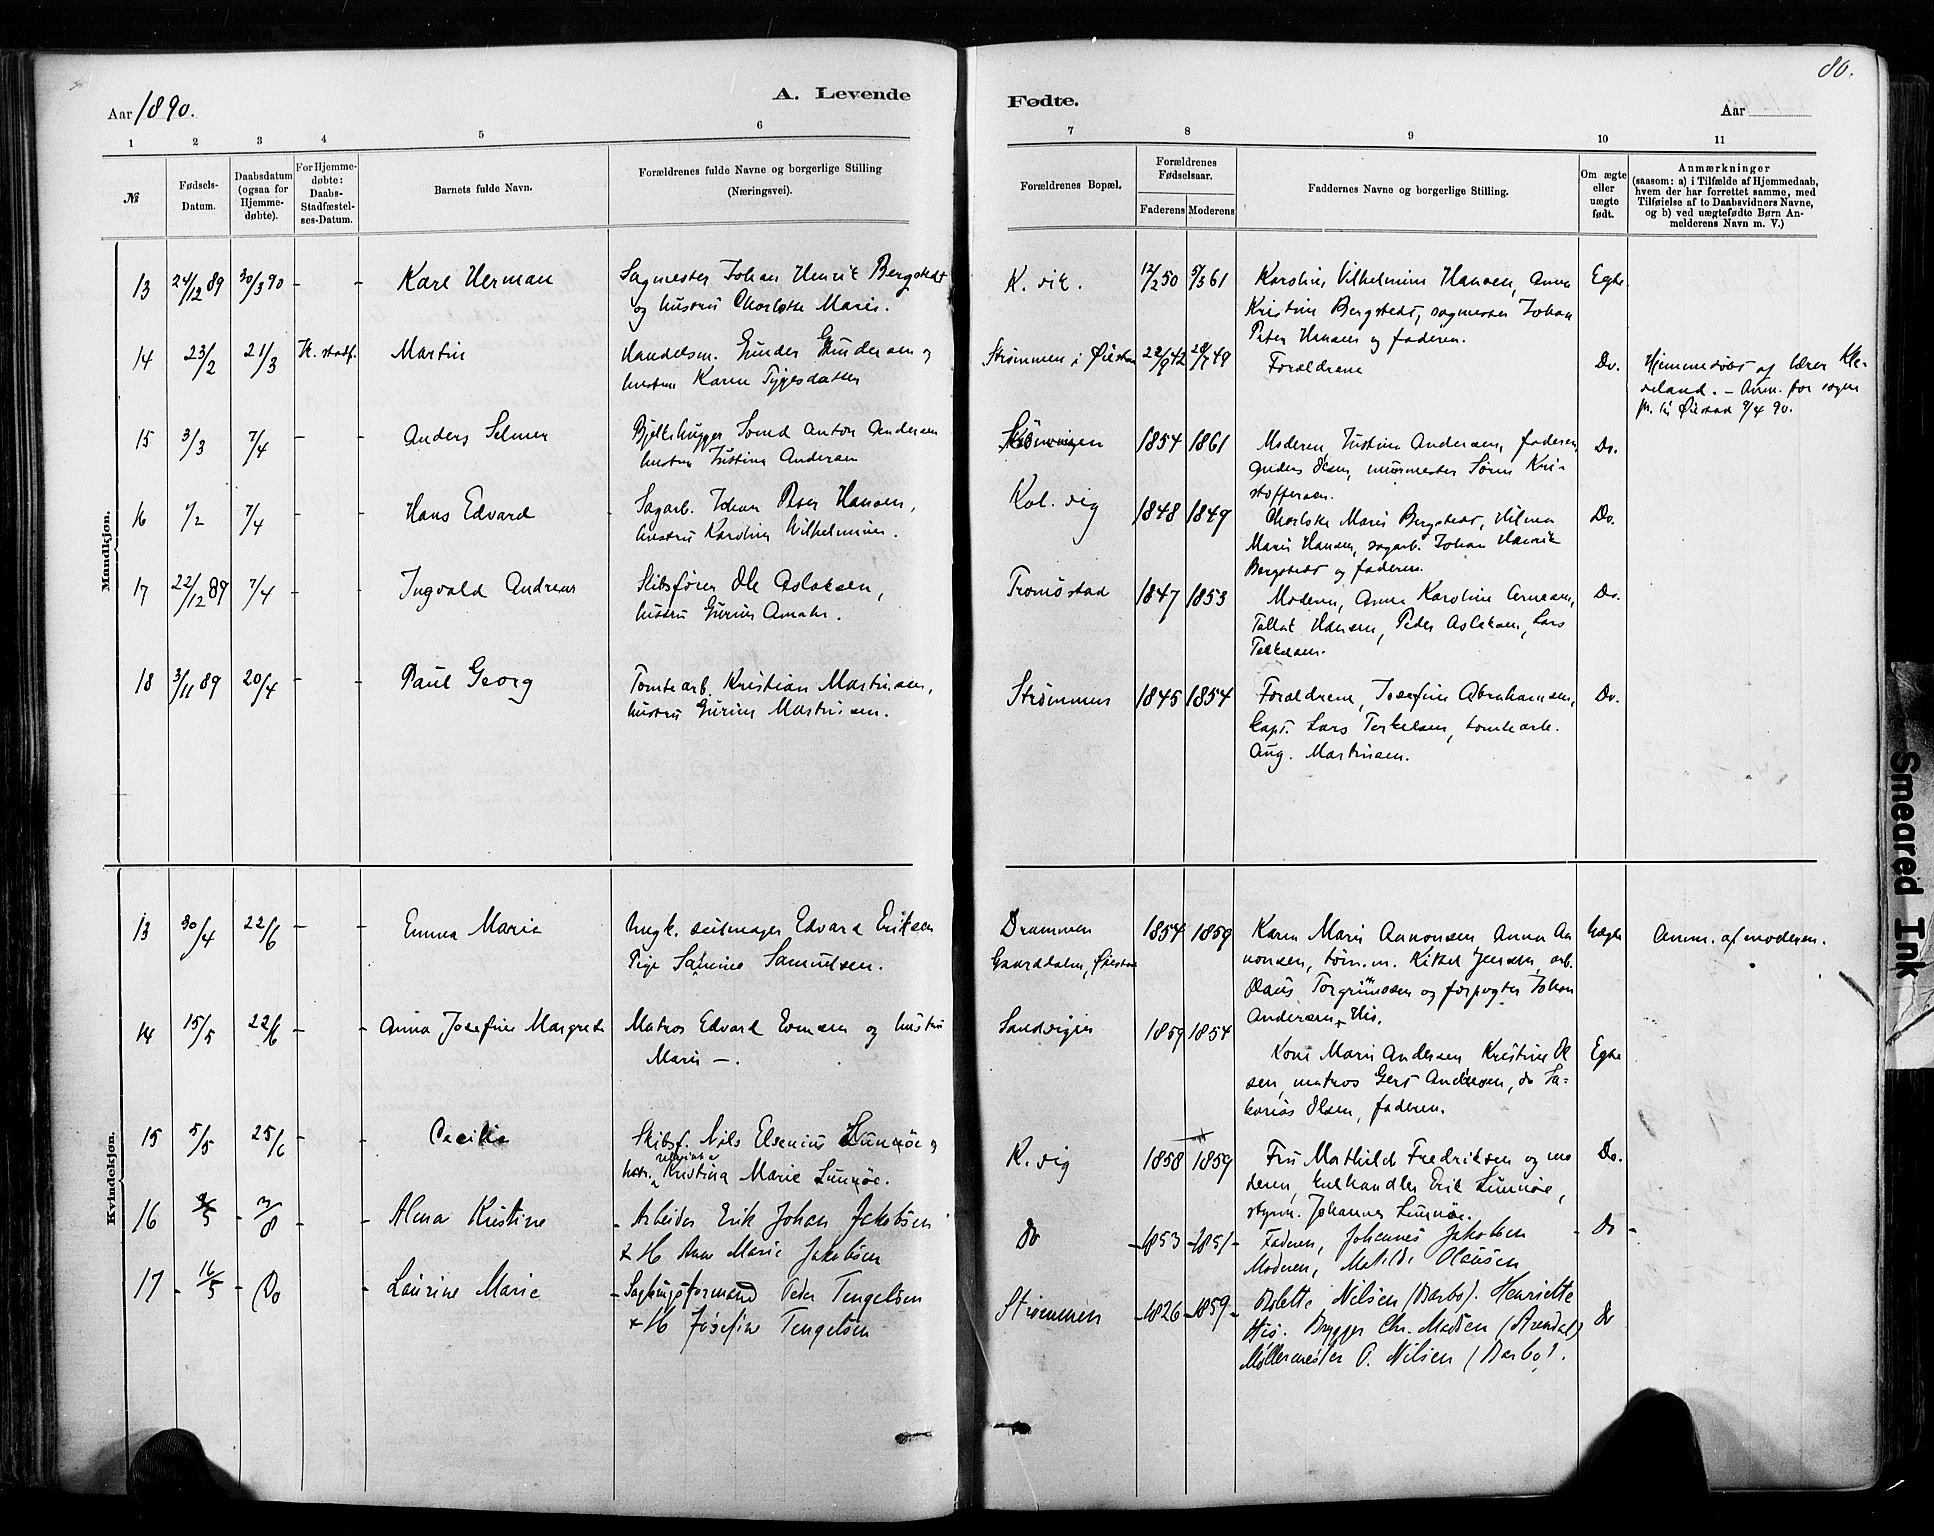 80.
Aar 1890.
A. Levende
Fødte.
Aar
1 2 3 4 5 6 7 8 9 10 11
№
Fødsels-
Datum.
Daabsdatum
(ogsaa for
Hjemme-
døbte).
For Hjemme-
døbte:
Daabs-
Stadfæstel-
ses-Datum.
Barnets fulde Navn.
Forældrenes fulde Navne og borgerlige Stilling
(Næringsvei).
Forældrenes Bopæl.
Forældrenes
Fødselsaar.
Faderens Moderens
Faddernes Navne og borgerlige Stilling.
Om ægte
eller
uægte
født.
Anmærkninger
(saasom: a) i Tilfælde af Hjemmedaab,
hvem der har forrettet samme, med
Tilføielse af to Daabsvidners Navne,
og b) ved uægtefødte Børn An-
melderens Navn m. V.)
Mandkjøn.
13 24/12 89 30/3 90 - - Karl Herman
Sagmester Johan Henrik Bergstedt
og hustru Charlotte Marie.
K. vik. 12/2 50 5/3 61
Karoline Vilhelmine Hansen, Anna
Kristine Bergstedt, sagmester Johan
Peter Hansen og faderen.
Egte
14 23/2 21/3 K. stadf. Martin
Handelsm. Gunder Gundersen og
hustru Karen Tygesdatter
Strømmen i Øiestad 22/9 42 49
Forældrene
Do.
Hjemmedøbt af lærer Kle-
veland. - Anm. for sogne
pr. til Øiestad 9/4 90.
15 3/3 7/4 - - Anders Selmer
Bjelkehugger Anton Andersen
hustru Justine Andersen
1854 1861
Moderen, Justine Andersen, faderen,
Anders Olsen, murmester Søren Kri-
stoffersen.
Do.
16 7/2 7/4 - - Hans Edvard
Sagarb. Johan Peter Hansen,
hustru Karoline Vilhelmine.
Kol. vig 1848 1849
Charlotte Marie Bergstedt, Hilma
Marie Hansen, sagarb. Johan Henrik
Bergstedt og faderen.
Do.
17 22/12 89 7/4 - - Ingvald Andreas
Skibsfører Ole Aslaksen,
hustru Gurine Amalie.
Tromøstad 1847 1853
Moderen, Anna Karoline Arnesen,
Tallak Hansen, Peder Aslaksen, Lars
Terkelsen.
Do.
18 3/11 89 20/4 - - Paul Georg
Tomtearb. Kristian Martinsen,
hustru Gurine Martinsen.
Strømmen 1845 1854
Forældrene, Josefine Abrahamsen,
Capt. Lars Terkelsen, tomtearb.
Aug. Martinsen.
Do.
Kvindekjøn.
13 30/4 22/6 - - Emma Marie
Ungk. seilmager Edvard Eriksen
Pige Samine Samuelsen.
Drammen
Gaarddalen, Øiestad
1854 1859
Karen Marie Aanonsen, Anna Aa-
nonsen, tøm.m. Kittel Jensen, arb.
Olaus Torgrimsen og forpagter Johan
Andersen, His.
Uægte
Anm. af moderen.
14 15/5 22/6 - - Anna Josefine Margrete
Matros Edvard Evensen og hustru
Marie -.
Sandvigen 1859 1854
Kone Marie Andersen Kristine Ol
sen, matros Gert Andersen, do Sa-
karias Olsen, faderen.
Egte
15 5/5 25/6 - - Cecilie
Skibsf. Nils Elsenius Lunnøe og
hstr. Kristina Marie Lunnøe.
K. vig 1858 1859
Fru Mathilde Fredriksen og mo
deren, kulhandler Erik Lunnøe,
styrm. Johannes Lunnøe.
Do.
16 3/8 - Alma Kristine
Arbeider Erik Johan Jakobsen
+ H Anne Marie Jakobsen
Do 1853 1851
Faderen, Johannes Jakobsen
Moderen, Matilde Hansen
Do
17 16/5 Do Laurine Marie
Sagbrugsformand Peder Tengelsen
+ H Josefine Tengelsen
Strømmen 1826 1859
Nilsen (Barbo). Henriette
His. Brygger Chr. Madsen (Arendal)
Møllermester P. Nilsen (Barbo).
Do
Smeared Ink